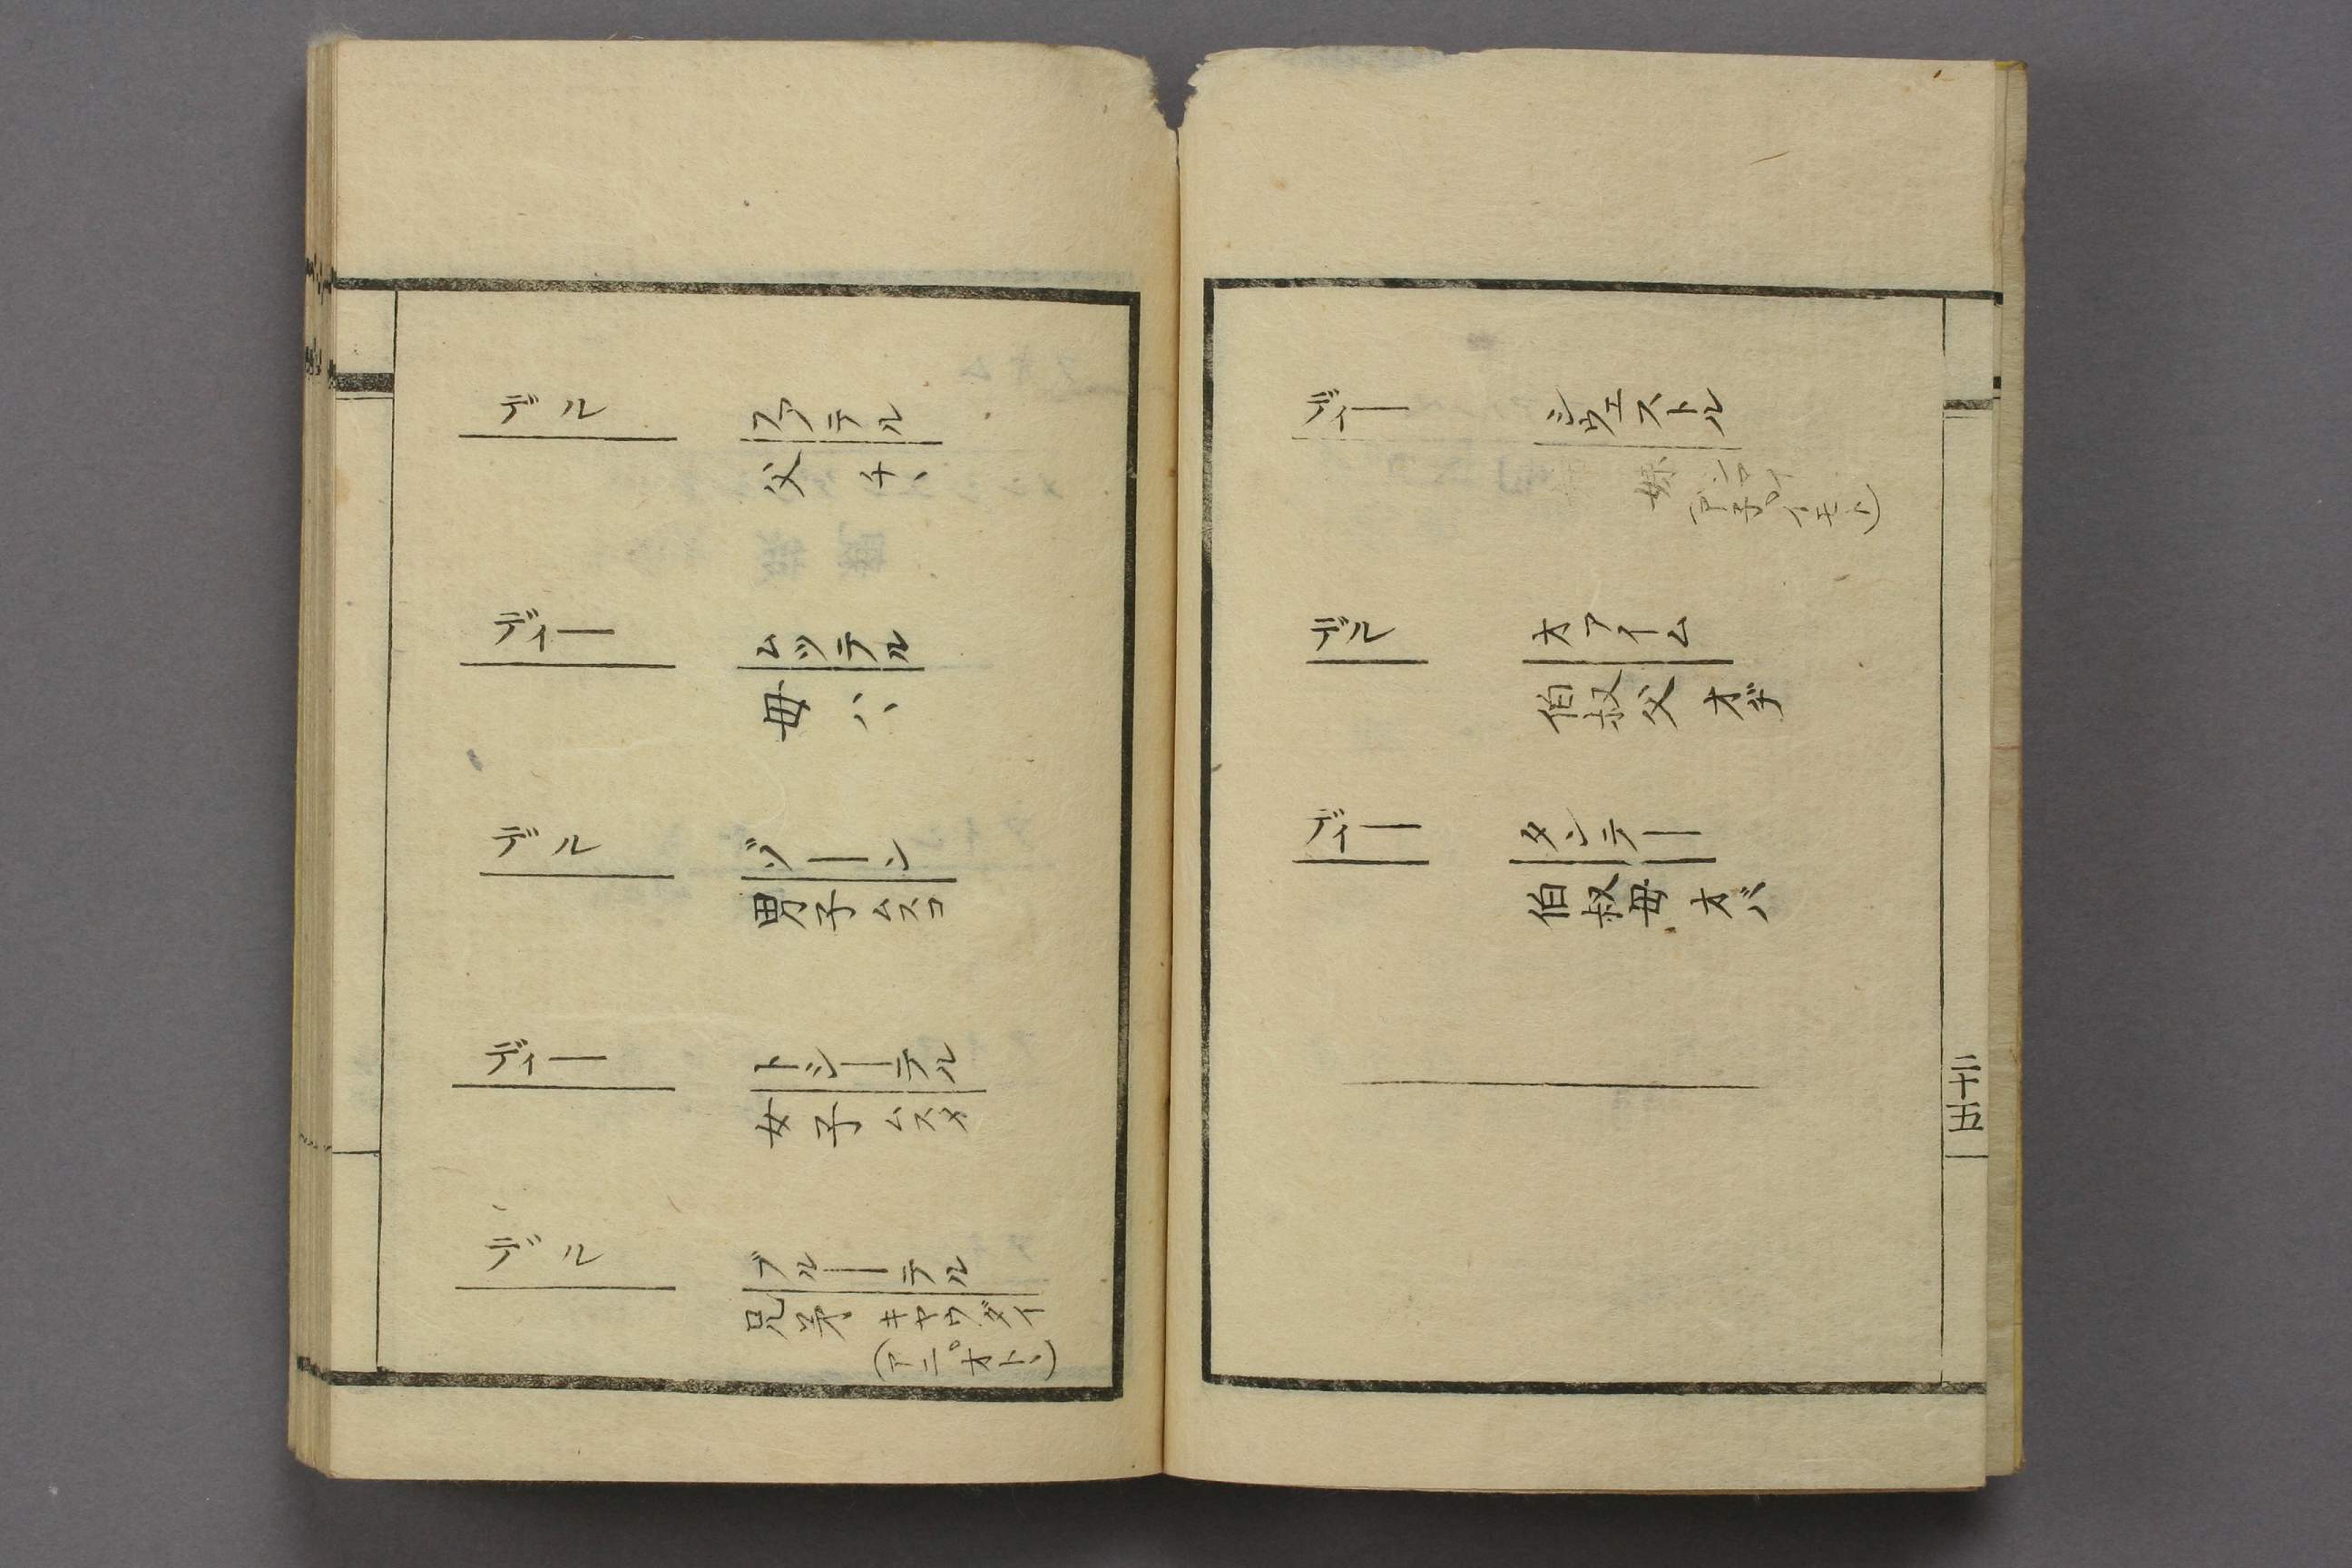 デル ファテル
父 チヽ
ディー ムッテル
母 ハヽ
デル ゾーン
男子 ムスコ
ディー トシーテル
女子 ムスメ
デル ブルーテル
兄弟 キヤウダイ
(アニ。オトヽ)
ディー シウエストル
妹 シマイ
(ア子。イモト)
デル オアイム
伯叔父 オヂ
ディー タンテー
伯叔母 オバ
二十五